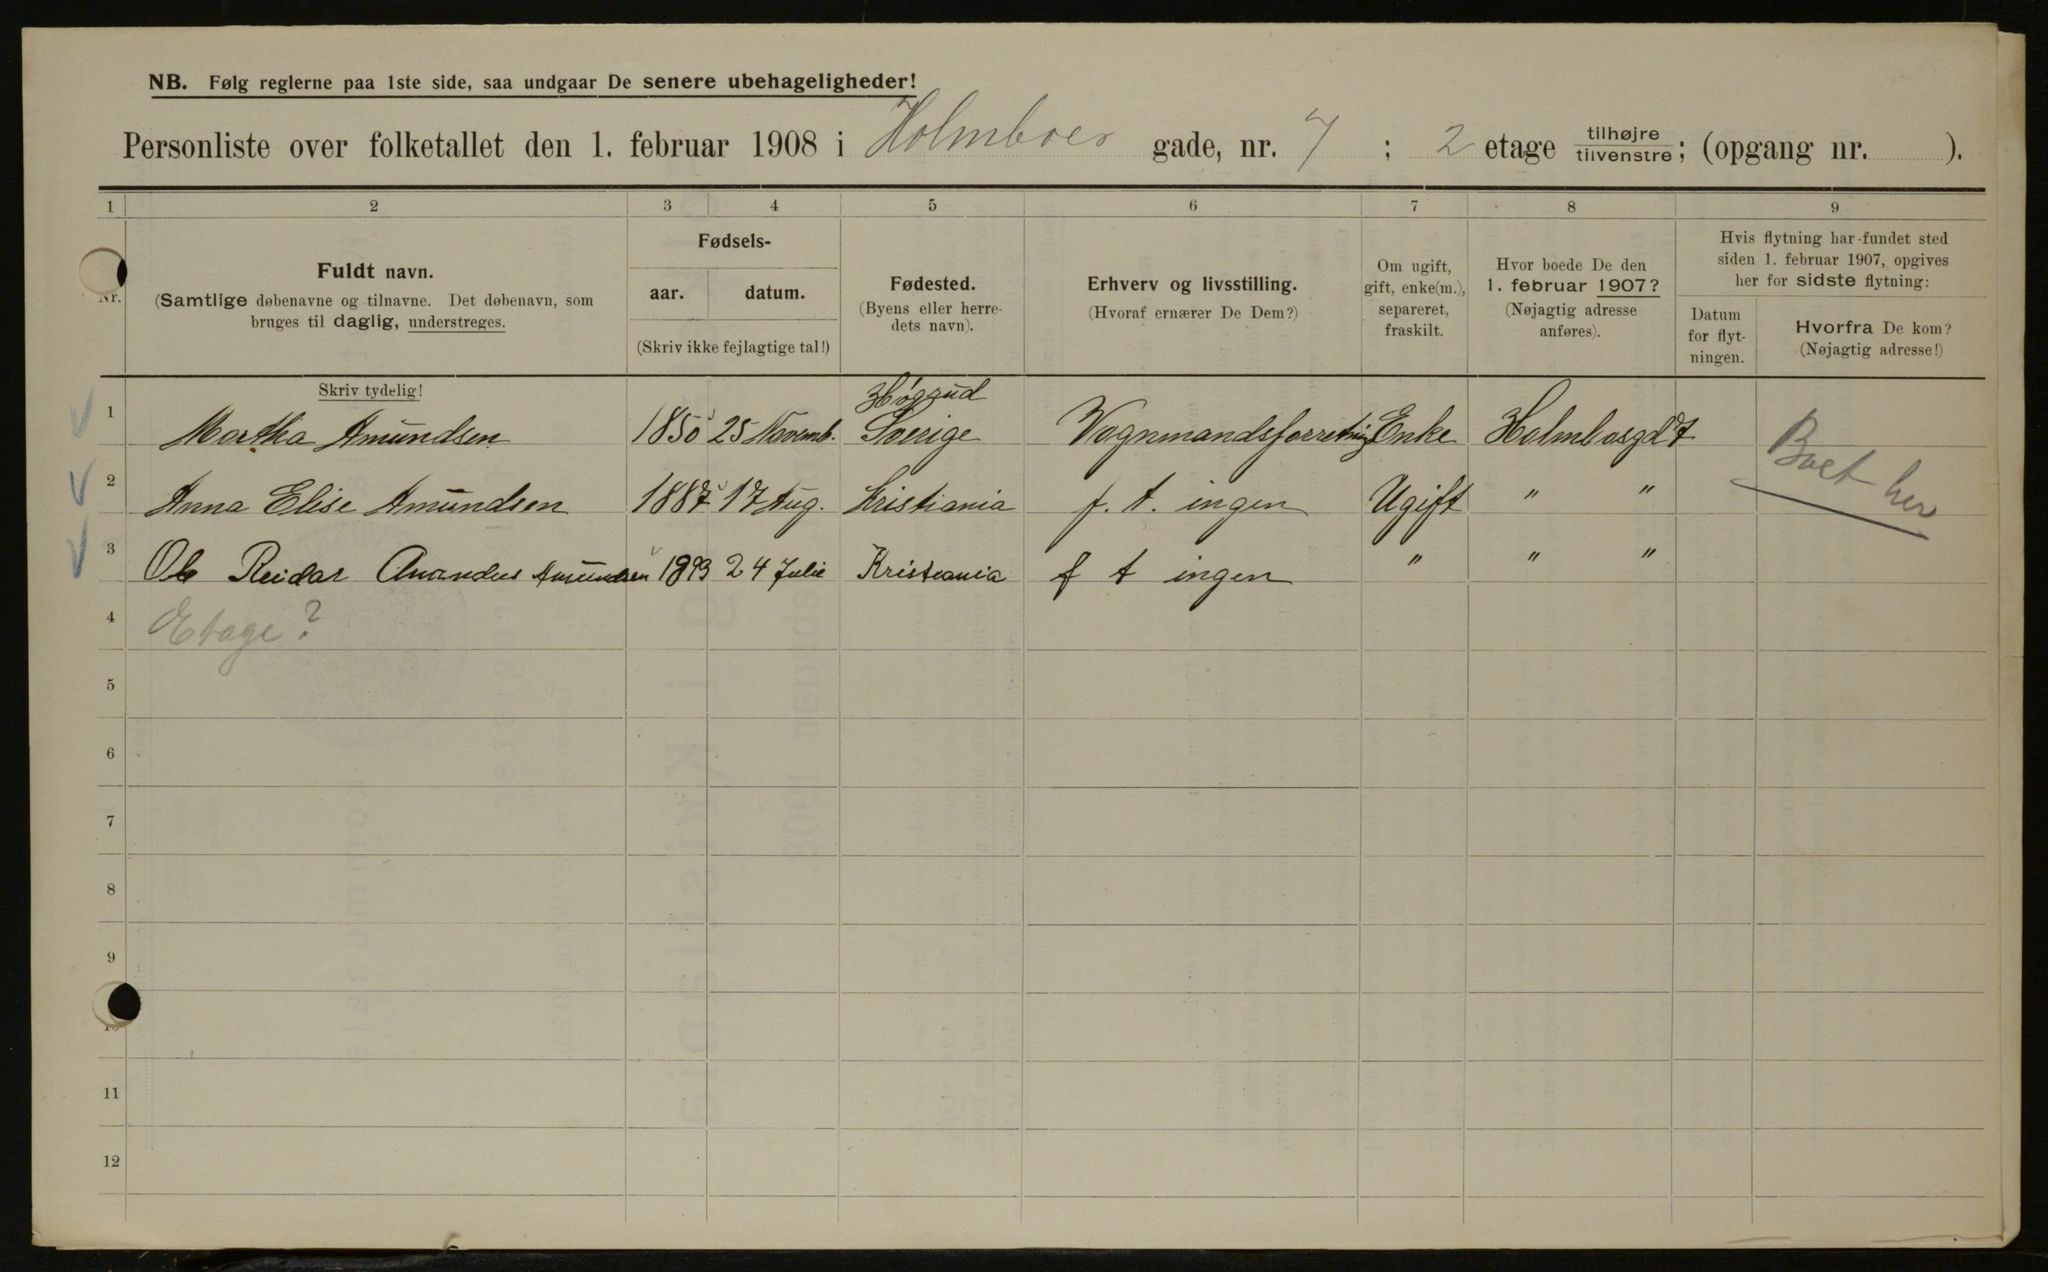 NB. Følg reglerne paa 1ste side, saa undgaar De senere ubehageligheder!
Personliste over folketallet den 1. februar 1908 i Holmboes gade, nr. 7 ; 2 etage tilhøjre / tilvenstre; (opgang nr. ).
1 2 3 4 5 6 7 8 9
Nr.
Fuldt navn.
(Samtlige døbenavne og tilnavne. Det døbenavn, som
bruges til daglig, understreges.
Skriv tydelig!
Fødsels-
aar. datum.
(Skriv ikke fejlagtige tal!)
Fødested.
(Byens eller herre-
dets navn).
Erhverv og livsstilling.
(Hvoraf ernærer De Dem?)
Om ugift,
gift, enke(m.),
separeret,
fraskilt.
Hvor boede De den
1. februar 1907?
(Nøjagtig adresse
anføres).
Hvis flytning har fundet sted
siden 1. februar 1907, opgives
her for sidste flytning:
Datum
for flyt-
ningen.
Hvorfra De kom?
(Nøjagtig adresse!)
1 Martha Amundsen 1850 25 Novemb. Sverige Vognmandsforretning Enke Holmbosgd 7
2 Anna Elise Amundsen 1887 17 Aug. Kristiania f. t. ingen Ugift " "
Boet her
3 Ole Reidar Amandus Amundsen 1893 24 Julie Kristiania f t ingen " " "
4 Etage?
5
6
7
8
9
10
11
12